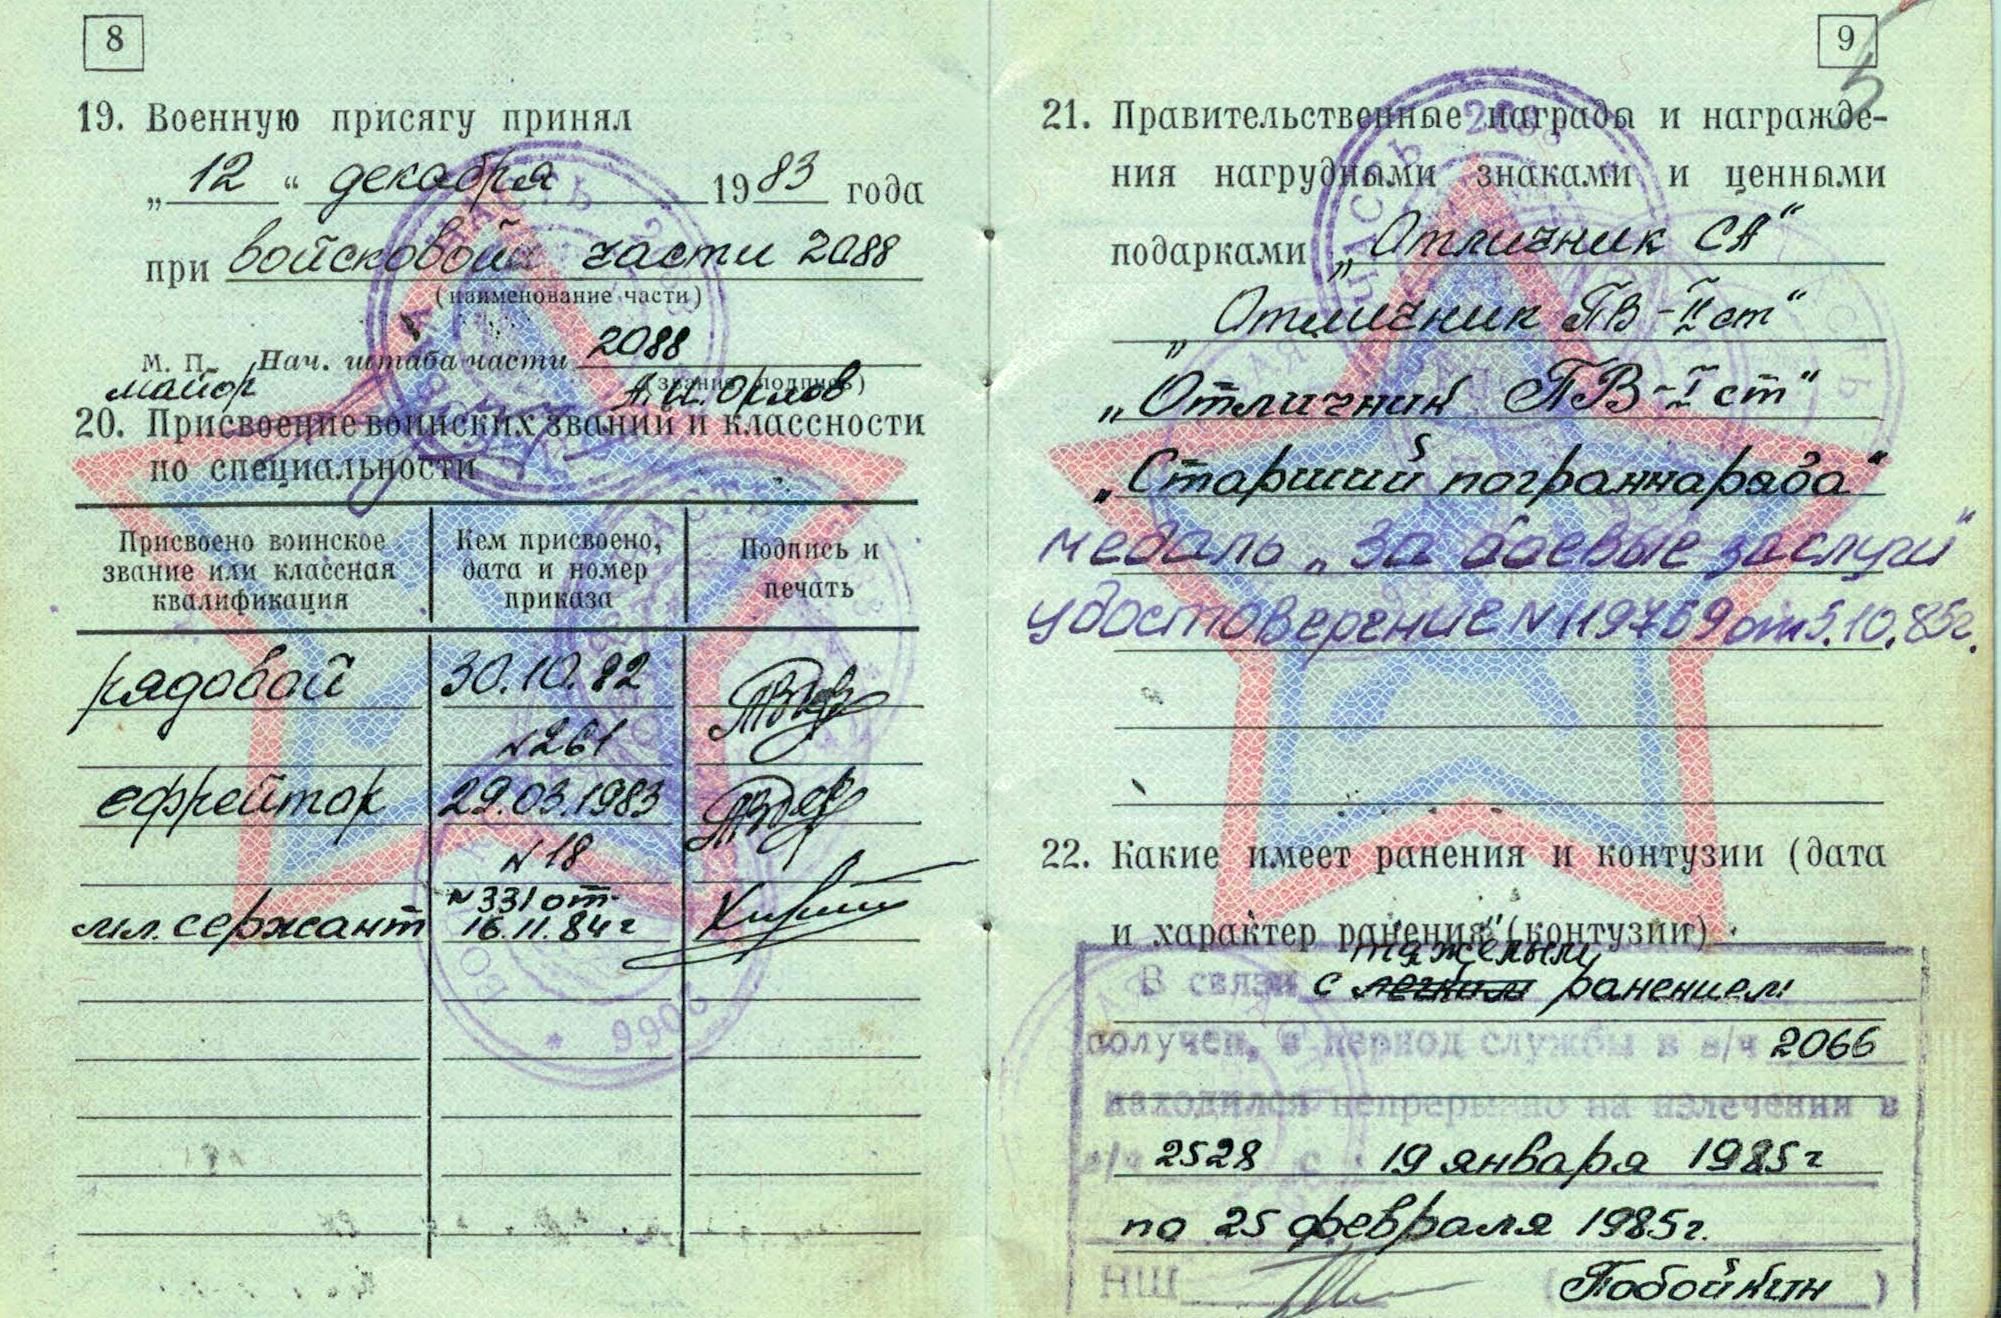 8
19. Военную присягу принял
„ 12 “ декабря 1983 года
при войсковой части 2088
(наименование части)
М. П. Нач. штаба части 2088
(звание, подпись)
майор А.И. Орлов
20. Присвоение воинских званий и классности
по специальности
Присвоено воинское звание или классная квалификация
Кем присвоено, дата и номер приказа
Подпись и печать
рядовой 30.10.82
N 261
ефрейтор 29.03.1983
N 18
мл. сержант N 331 от
16.11.84 г
ВОЙСКОВАЯ ЧАСТЬ 2066
9
21. Правительственные награды и награжде-
ния нагрудными знаками и ценными
подарками „Отличник СА“
„Отличник ПВ-II ст“
„Отличник ПВ-I ст“
„Старший погранаряда“
медаль „За боевые заслуги“
удостоверение N 119759 от 5.10.85г.
22. Какие имеет ранения и контузии (дата
и характер ранения (контузии)
тяжелым
В связи с легким ранением
получен. в период службы в в/ч 2066
находился непрерывно на излечении в
в/ч 2528 с 19 января 1985 г
по 25 февраля 1985г.
НШ (Побойкин)